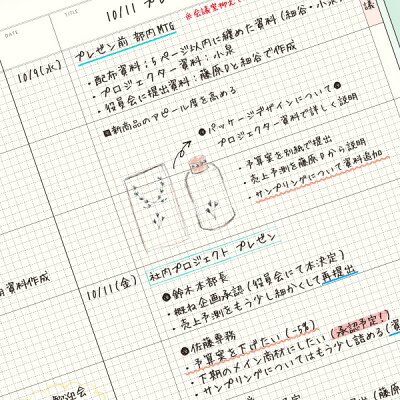 DATE
TITLE
10/11 プレ
※会議室抑え
議
10/9(水)
プレゼン前 部内MTG
・配布資料:5ページ以内に纏めた資料(細谷・小泉
・プロジェクター資料:小泉
・役員会に提出資料:藤原Dと細谷で作成
■新商品のアピール度を高める
●パッケージデザインについて●
プロジェクター資料で詳しく説明
・予算案を別紙で提出
・売上予測を藤原Dから説明
・サンプリングについて資料追加
資料作成
10/11(金)
社内プロジェクト プレゼン
●鈴木本部長
・概ね企画承認(役員会にて本決定)
・売上予測をもう少し細かくして再提出
●佐藤専務
・予算案を下げたい(-5%)(承認予定!)
・下期のメイン商材にしたい
・サンプリングについてはもう少し詰める(資
歓迎会